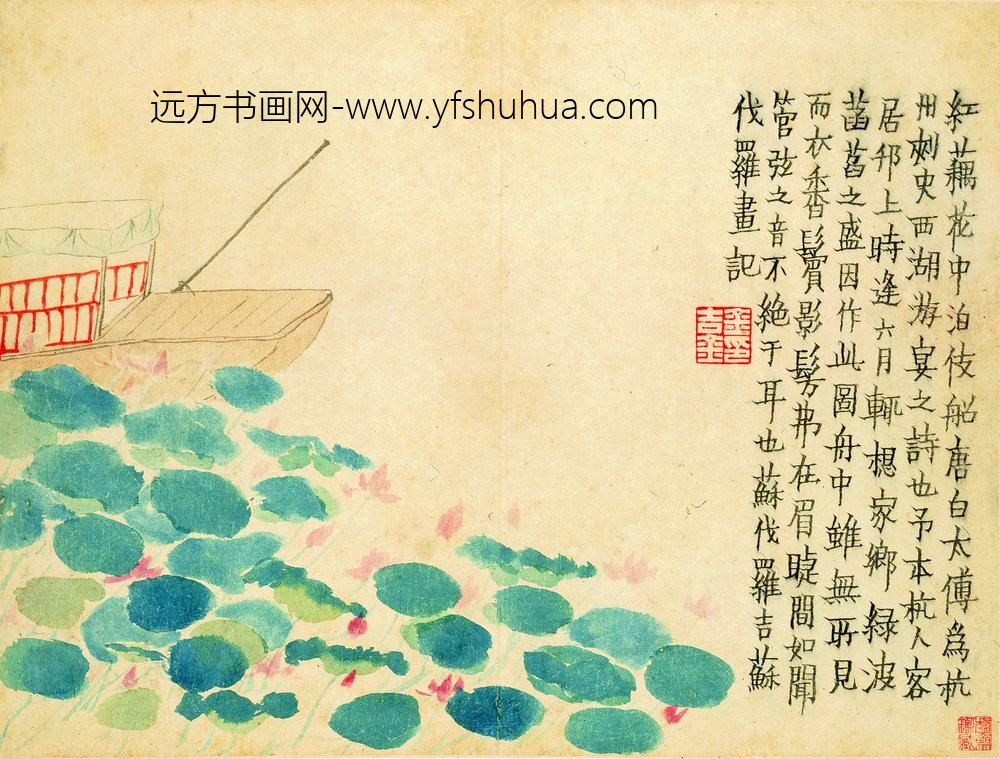 远方书画网-www.yfshuhua.com
紅藕花中泊伎船唐白太傅爲杭
州刺史西湖游宴之詩也予本杭人客
居邗上時逢六月輒想家鄉綠波
菡萏之盛因作此圖舟中雖無所見
而衣香鬢影髣弗在眉睫間如聞
管弦之音不絶于耳也蘇伐羅吉蘇
伐羅畫記